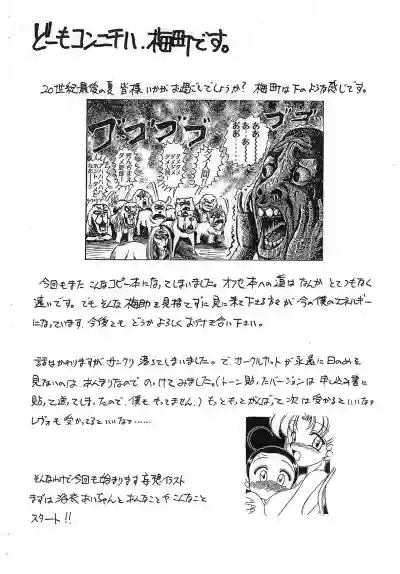 どーもコンニチハ、梅町です。
20世紀最後の夏 皆様いかがお過ごしでしょうか? 梅町は下のような感じです。
ゴゴゴ
ゴゴゴゴゴ
今回もまた こんなコピー本になってしまいました。オフセ本への道はなんか とてつもなく
遠いです。でも そんな梅町を見捨てずに見に来て下さる方々が 今の僕のエネルギー
になっています。今後とも どうか よろしくおつき合い下さい。
話はかわりますが サンクリ 落ってしまいました。で、サークルカットが永遠に日のめを
見ないのは あんまりなので のっけてみました。(トーン貼ったバージョンは 申し込み書に
貼って送ってしまったので、僕も もってません。)もっともっとがんばって 次は受かるといいなァ
レヴォも受かってるといいなァ……
そんなわけで今回も始まります妄想イラスト
まずは 浴衣 おいちゃんと あんなことや こんなこと
スタート!!